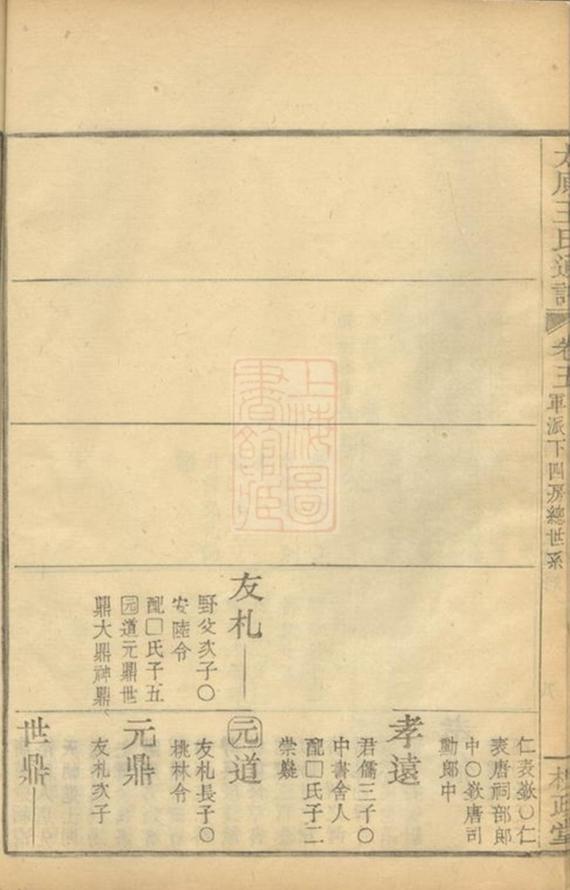 太原王氏通譜 卷五 軍派下四房總世系
槐政堂
仁表嶽〇仁
表唐祠部郎
中〇嶽唐司
勳郎中
孝遠
君儒三子〇
中書舍人
配囗氏子二
崇
友札
野父次子〇
安陸令
配囗氏子五
元道元鼎世
鼎大鼎神鼎
元道
友札長子〇
桃林令
元鼎
友札次子
世鼎
上海圖
書館藏